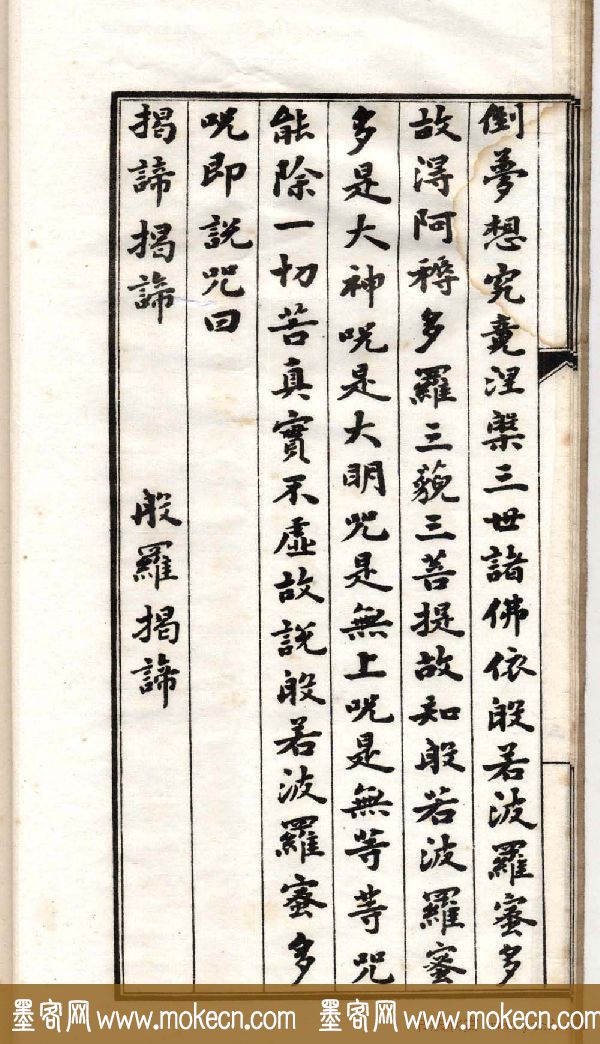 倒夢想究竟涅槃三世諸佛依般若波羅蜜多
故得阿耨多羅三藐三菩提故知般若波羅蜜
多是大神咒是大明咒是無上咒是無等等咒
能除一切苦真實不虛故說般若波羅蜜多
咒即說咒曰
揭諦揭諦 般羅揭諦
墨客网 www.mokecn.com 墨客网 www.mokecn.com